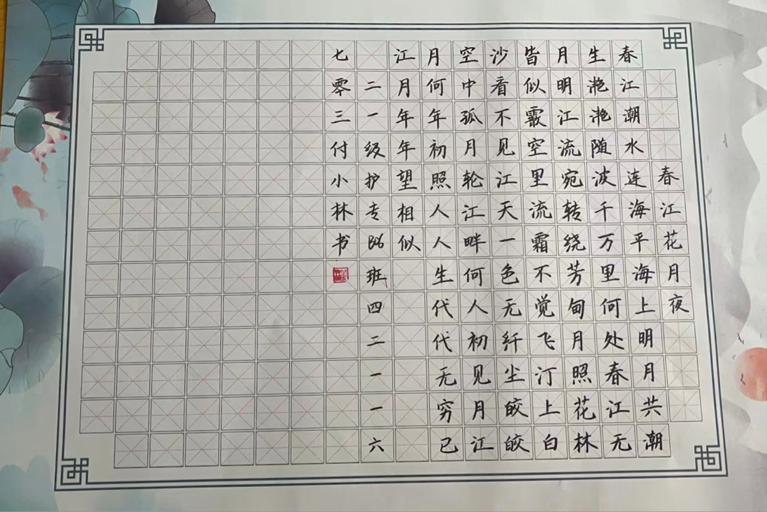 春江花月夜
春江潮水连海平海上明月共潮
生滟滟随波千万里何处春江无
月明江流宛转绕芳甸月照花林
皆似霰空里流霜不觉飞汀上白
沙看不见江天一色无纤尘皎皎
空中孤月轮江畔何人初见月江
月何年初照人人生代代无穷已
江月年年望相似
二一级护专B6班四二一一六
七零三付小林书